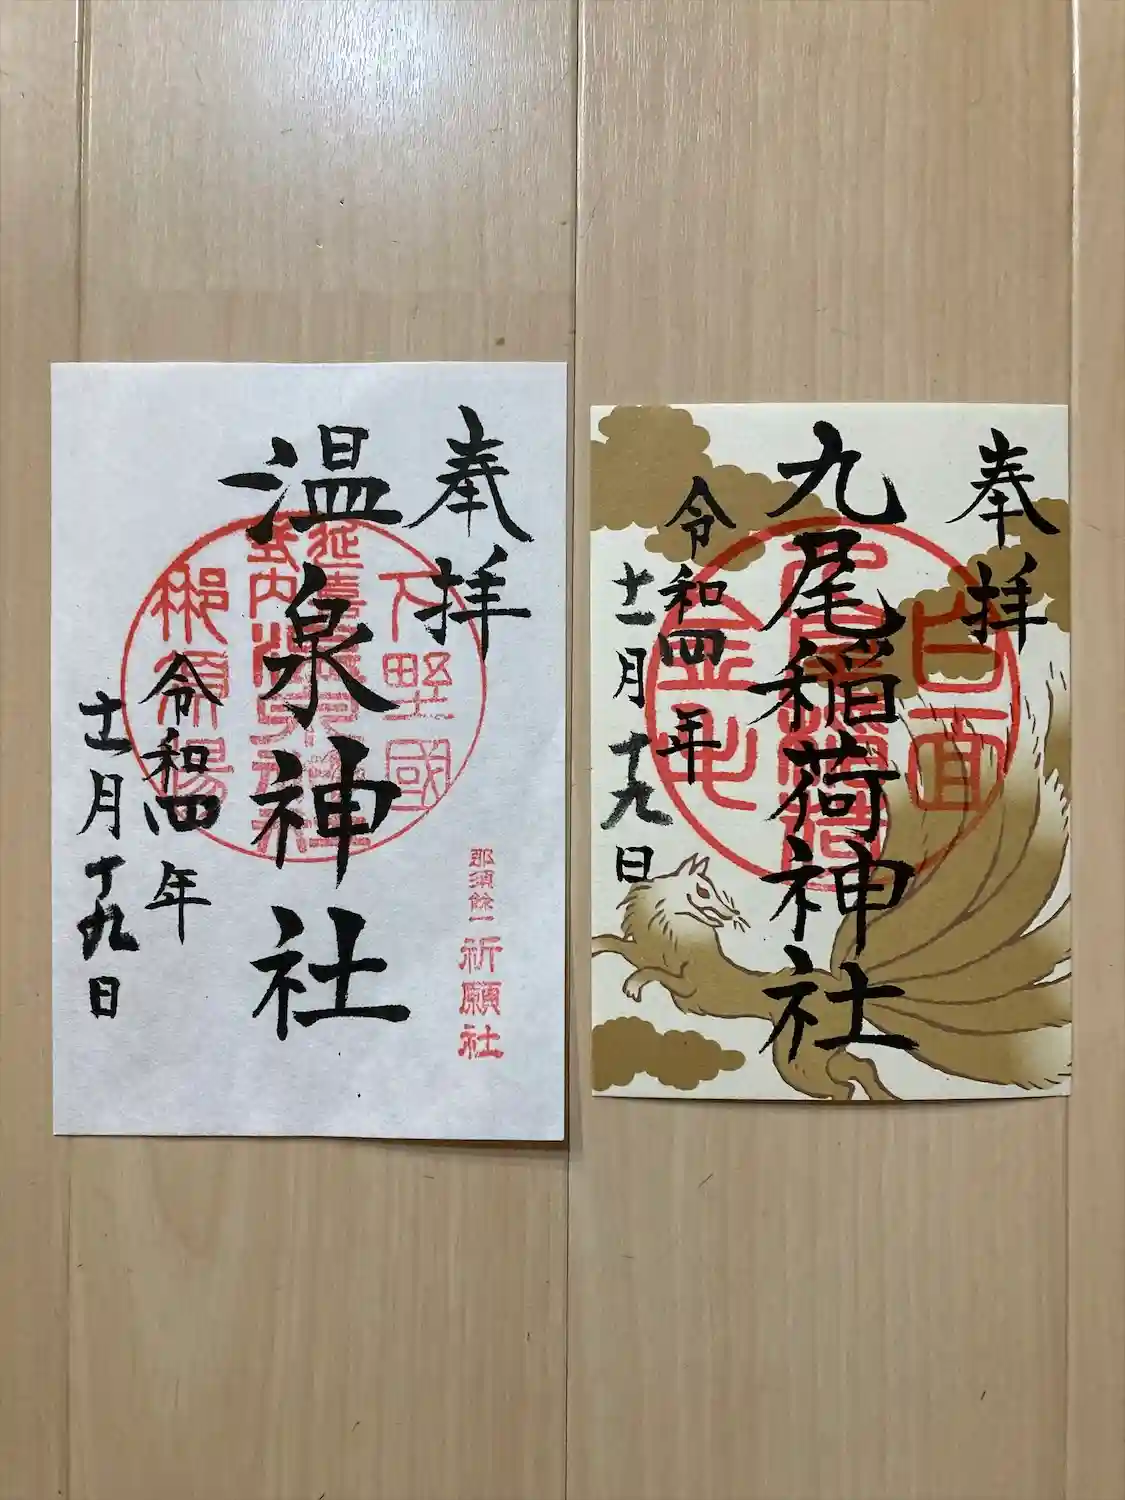 奉拝
温泉神社
令和四年
十一月十九日
下野國
延喜式内温泉神社
那須湯
那須余一祈願社
奉拝
九尾稲荷神社
令和四年
十一月十九日
白面
九尾稲荷
金毛